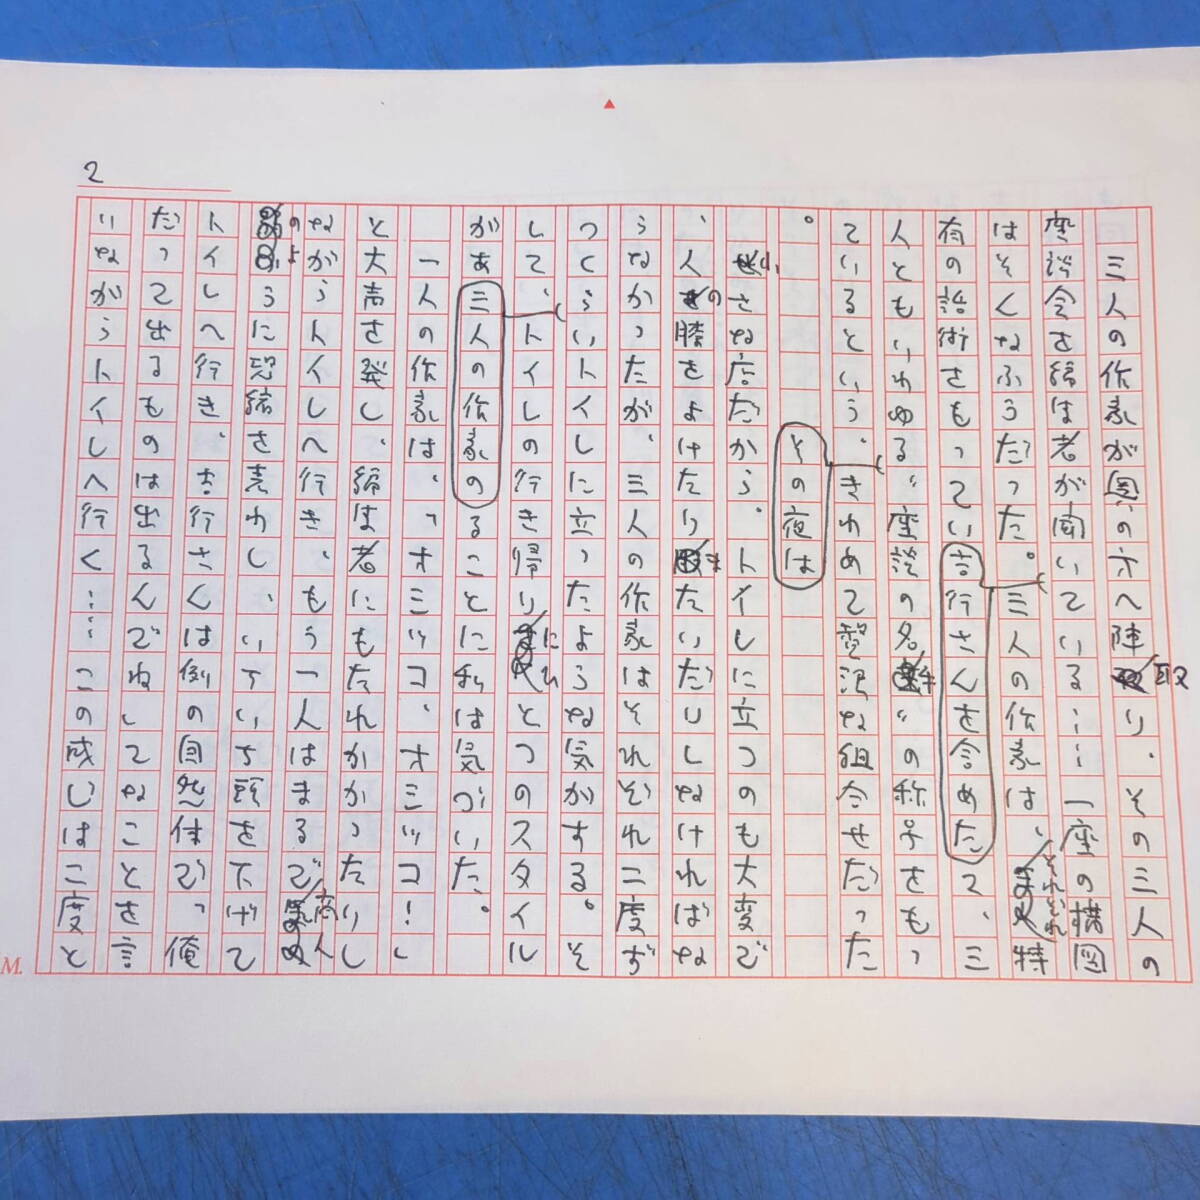 2
三人の作家が図の方へ陣取り、その三人の
座談会を編は者が聞いている……一座の構図
はそんなふうだった。三人の作家は、それぞれ特
有の話術をもってい吉行さんを含めたて、三
人ともいわゆる〝座談の名手〟の称号をもっ
ているという、きわめて贅沢な組合せだった
。その夜は
小さな店だから、トイレに立つのも大変で
、人の膝をよけたりまたいだりしなければな
らなかったが、三人の作家はそれぞれ二度ず
つくらいトイレに立ったような気がする。そ
して、トイレの行き帰りにひとつのスタイル
があ三人の作家のることに私は気づいた。
一人の作家は、「オミッコ、オミッコ！」
と大声を発し、編は者にもたれかかったりし
ながらトイレへ行き、もう一人はまるで商人
のように恐縮を表わし、いちいち頭を下げて
トイレへ行き、吉行さんは例の自然体で「俺
だって出るものは出るんでね」てなことを言
いながらトイレへ行く……この感じはこ度と
M.